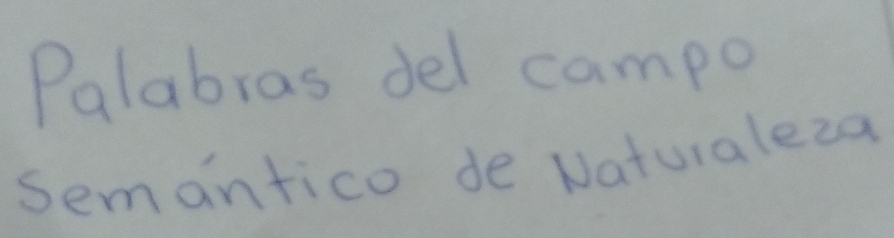 Palabras del campo
Semántico de Naturaleza